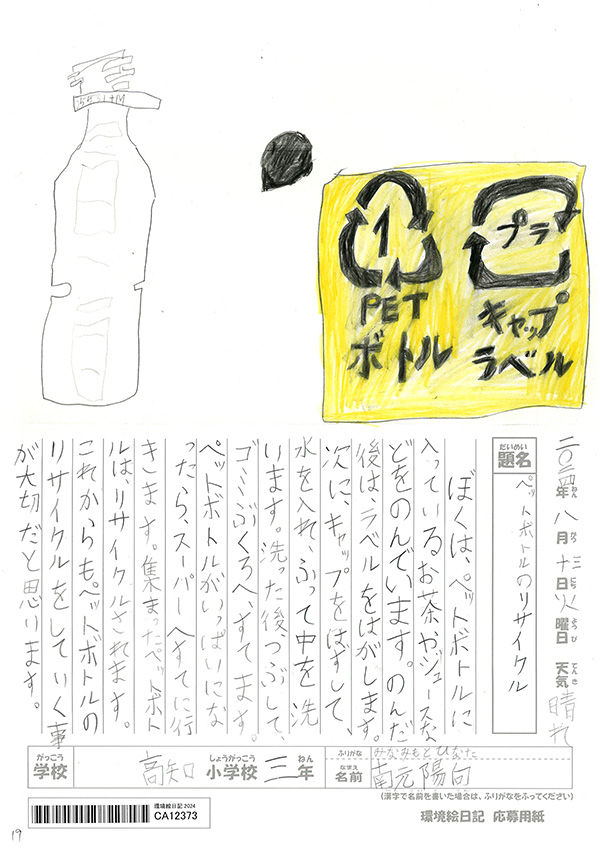 1
プラ
PET
ボトル
キャップ
ラベル
二〇二四年 八月 十三日 火曜日 天気 晴れ
ねん がつ にち ようび てんき
だいめい
題名
ペットボトルのリサイクル
ぼくは、ペットボトルに
入っているお茶やジュースな
どをのんでいます。のんだ
後は、ラベルをはがします。
次に、キャップをはずして、
水を入れ、ふって中を洗
います。洗った後、つぶして、
ゴミぶくろへ、すてます。
ペットボトルがいっぱいにな
ったら、スーパーへすてに行
きます。集まったペットボト
ルは、リサイクルされます。
これからもペットボトルの
リサイクルをしていく事
が大切だと思います。
がっこう しょうがっこう ねん
学校 高知 小学校 三年
ふりがな みなみもと ひなた
なまえ
名前 南元陽向
(漢字で名前を書いた場合は、ふりがなをふってください)
環境絵日記 2024
CA12373
環境絵日記 応募用紙
19